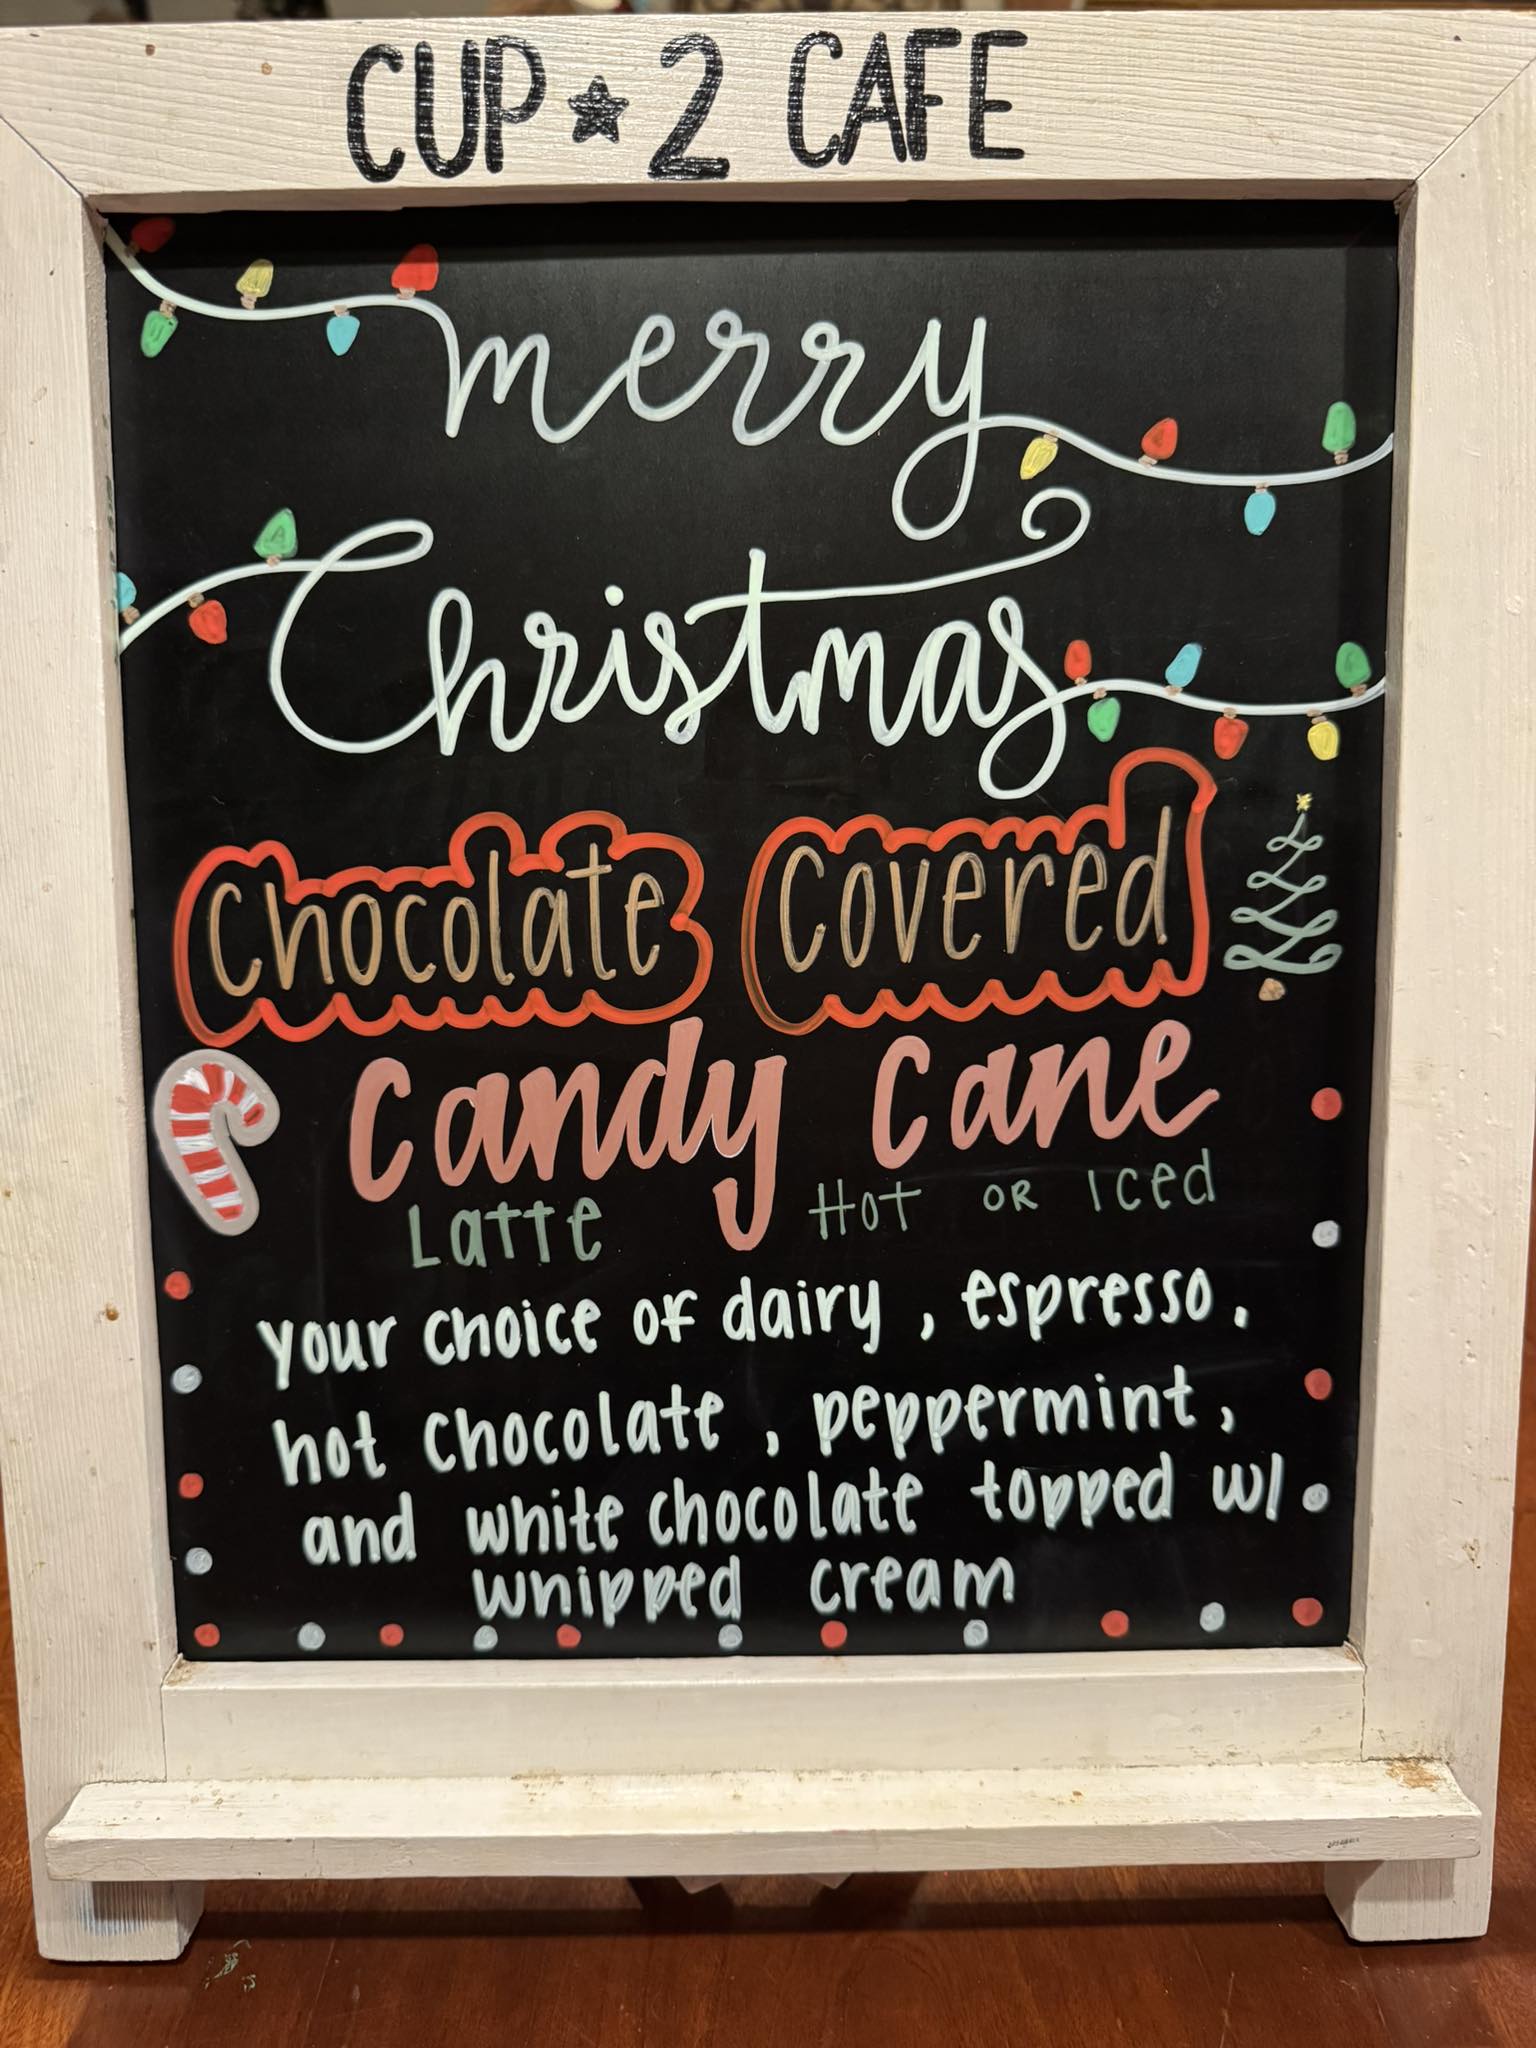 CUP★2 CAFE
merry
Christmas
Chocolate Covered
candy cane
Latte Hot OR Iced
your choice of dairy, espresso,
hot chocolate, peppermint,
and white chocolate topped w/
whipped cream